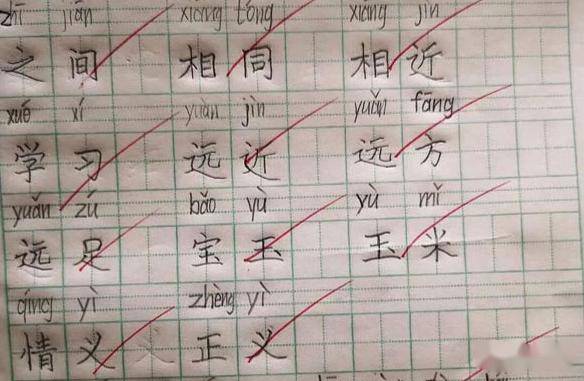 zhī jiān xiāng tóng xiāng jìn
之间 相同 相近
xué xí yuǎn jìn yuǎn fāng
学习 远近 远方
yuǎn zú bǎo yù yù mǐ
远足 宝玉 玉米
qíng yì zhèng yì
情义 正义